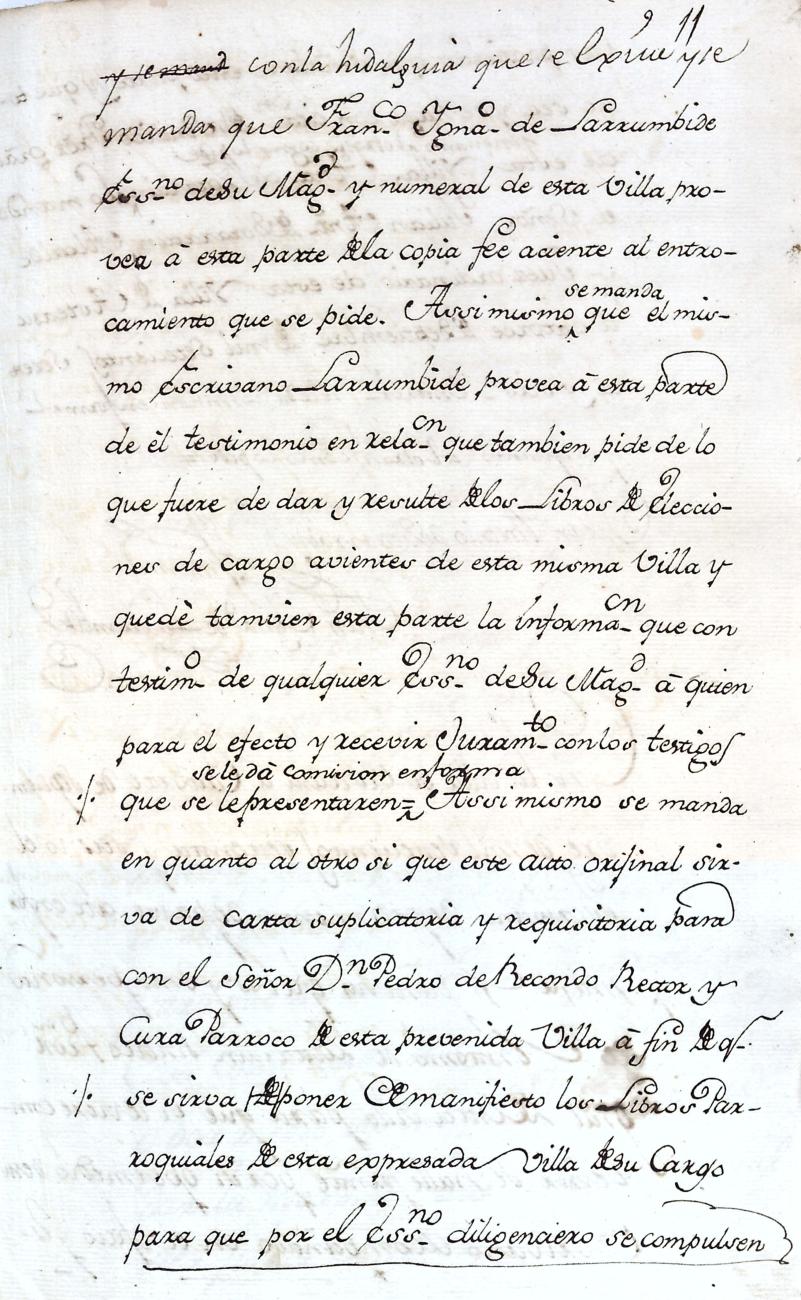 9 11
y se mand con la hidalguia que se y se
manda que Fran.co Ygna.o de Larrumbide
Ess.no de Su Mag.d y numeral de esta Villa pro-
vea â esta parte de la copia fee aciente al entro-
camiento que se pide. Assimismo se manda que el mis-
mo Escrivano Larrumbide provea â esta parte
de èl testimonio en rela.cn que tambien pide de lo
que fuere de dar y resulte de los Libros de Eleccio-
nes de cargo avientes de esta misma Villa y
quedè tamvien esta parte la informa.cn que con
testim.o de qualquier Ess.no de Su Mag.d â quien
para el efecto y recevir Juram.to con los testigos
se le dâ comision en forma
./. que se le presentaren = Assimismo se manda
en quanto al otro si que este auto orijinal sir-
va de carta suplicatoria y requisitoria para
con el Señor D.n Pedro de Recondo Rector y
Cura Parroco de esta prevenida Villa â fin de q.
./. se sirva poner de manifiesto los Libros Par-
roquiales de esta expresada Villa de su Cargo
para que por el Ess.no diligenciero se compulsen